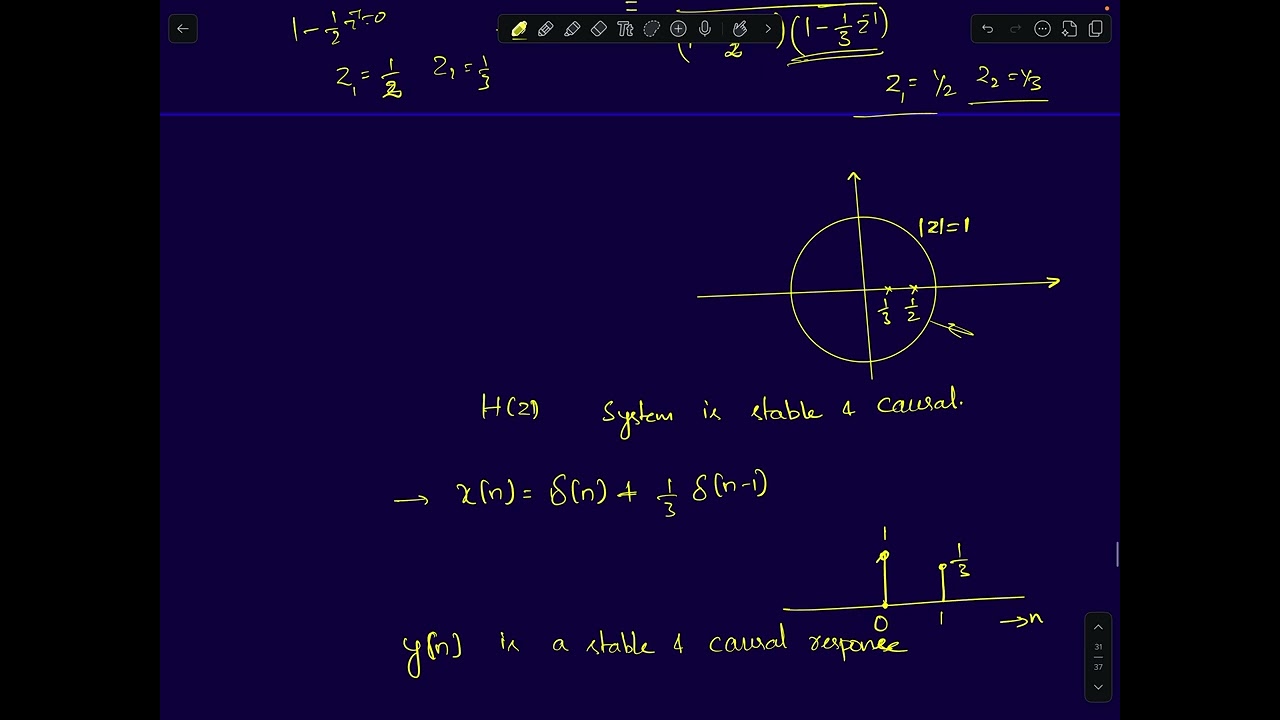 1 - 1/2 z⁻¹ = 0
=
(1 - 1/3 z⁻¹)
z₁ = 1/2 z₂ = 1/3
z₁ = 1/2 z₂ = 1/3
|z|=1
1/3 1/2
H(z) System is stable & causal.
→ x(n) = δ(n) + 1/3 δ(n-1)
1
1/3
0 1 → n
y[n] is a stable & causal response
31
37